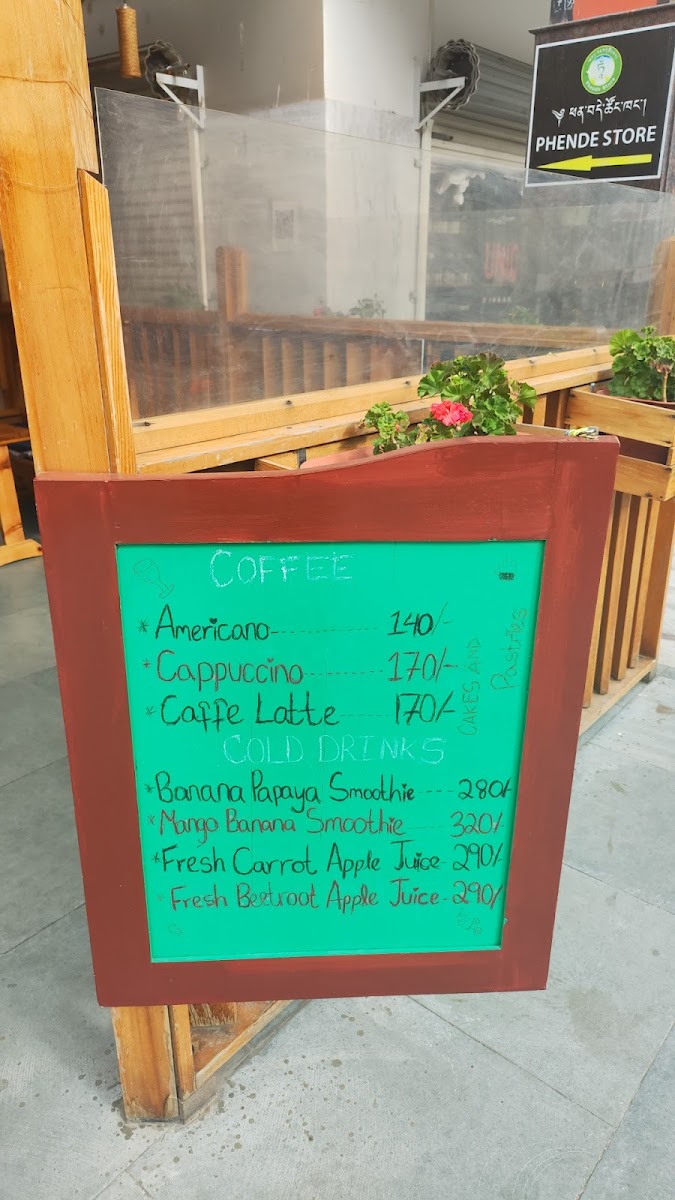 ༄ ཕན་བདེ་ཚོང་ཁང་།
PHENDE STORE
COFFEE
*Americano------------ 140/-
*Cappuccino---------- 170/-
*Caffe Latte------ 170/-
CAKES AND
Pastries
COLD DRINKS
*Banana Papaya Smoothie ---- 280/-
*Mango Banana Smoothie---- 320/-
*Fresh Carrot Apple Juice- 290/-
*Fresh Beetroot Apple Juice- 290/-